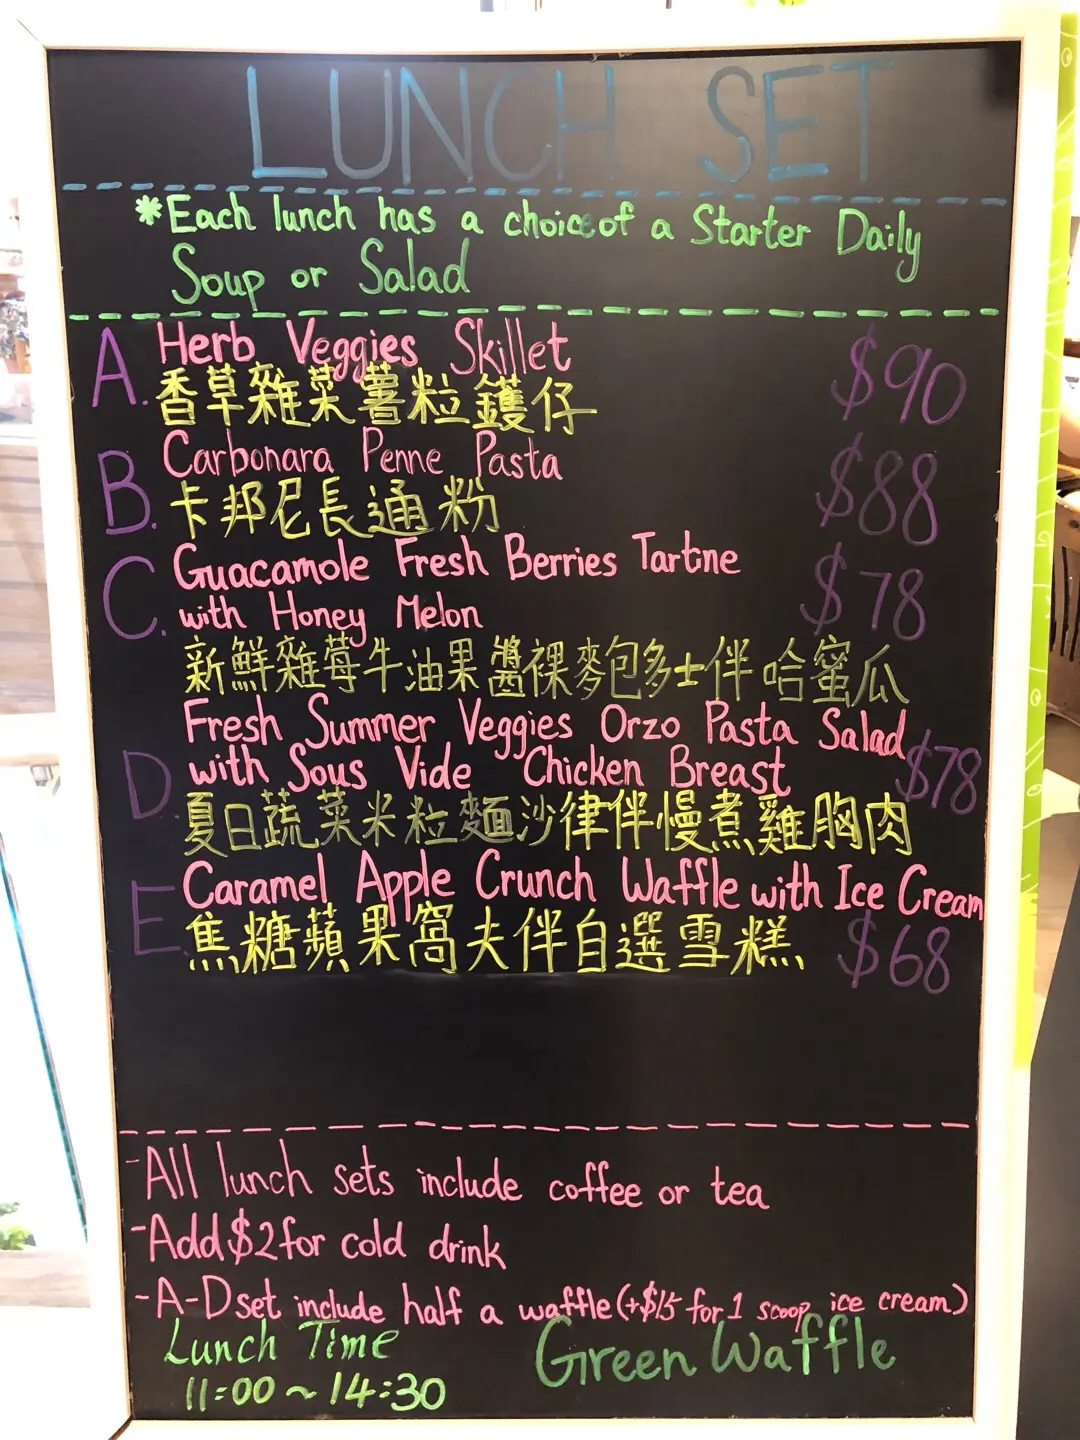 LUNCH SET
*Each lunch has a choice of a Starter Daily
Soup or Salad
A. Herb Veggies Skillet $90
香草雜菜薯粒鑊仔
B. Carbonara Penne Pasta $88
卡邦尼長通粉
C. Guacamole Fresh Berries Tartne $78
with Honey Melon
新鮮雜莓牛油果醬裸麥包多士伴哈蜜瓜
Fresh Summer Veggies Orzo Pasta Salad
D. with Sous Vide Chicken Breast $78
夏日蔬菜米粒麵沙律伴慢煮雞胸肉
E Caramel Apple Crunch Waffle with Ice Cream
焦糖蘋果窩夫伴自選雪糕 $68
-All lunch sets include coffee or tea
-Add $2 for cold drink
-A-D set include half a waffle (+$15 for 1 scoop ice cream)
Lunch Time Green Waffle
11:00~14:30